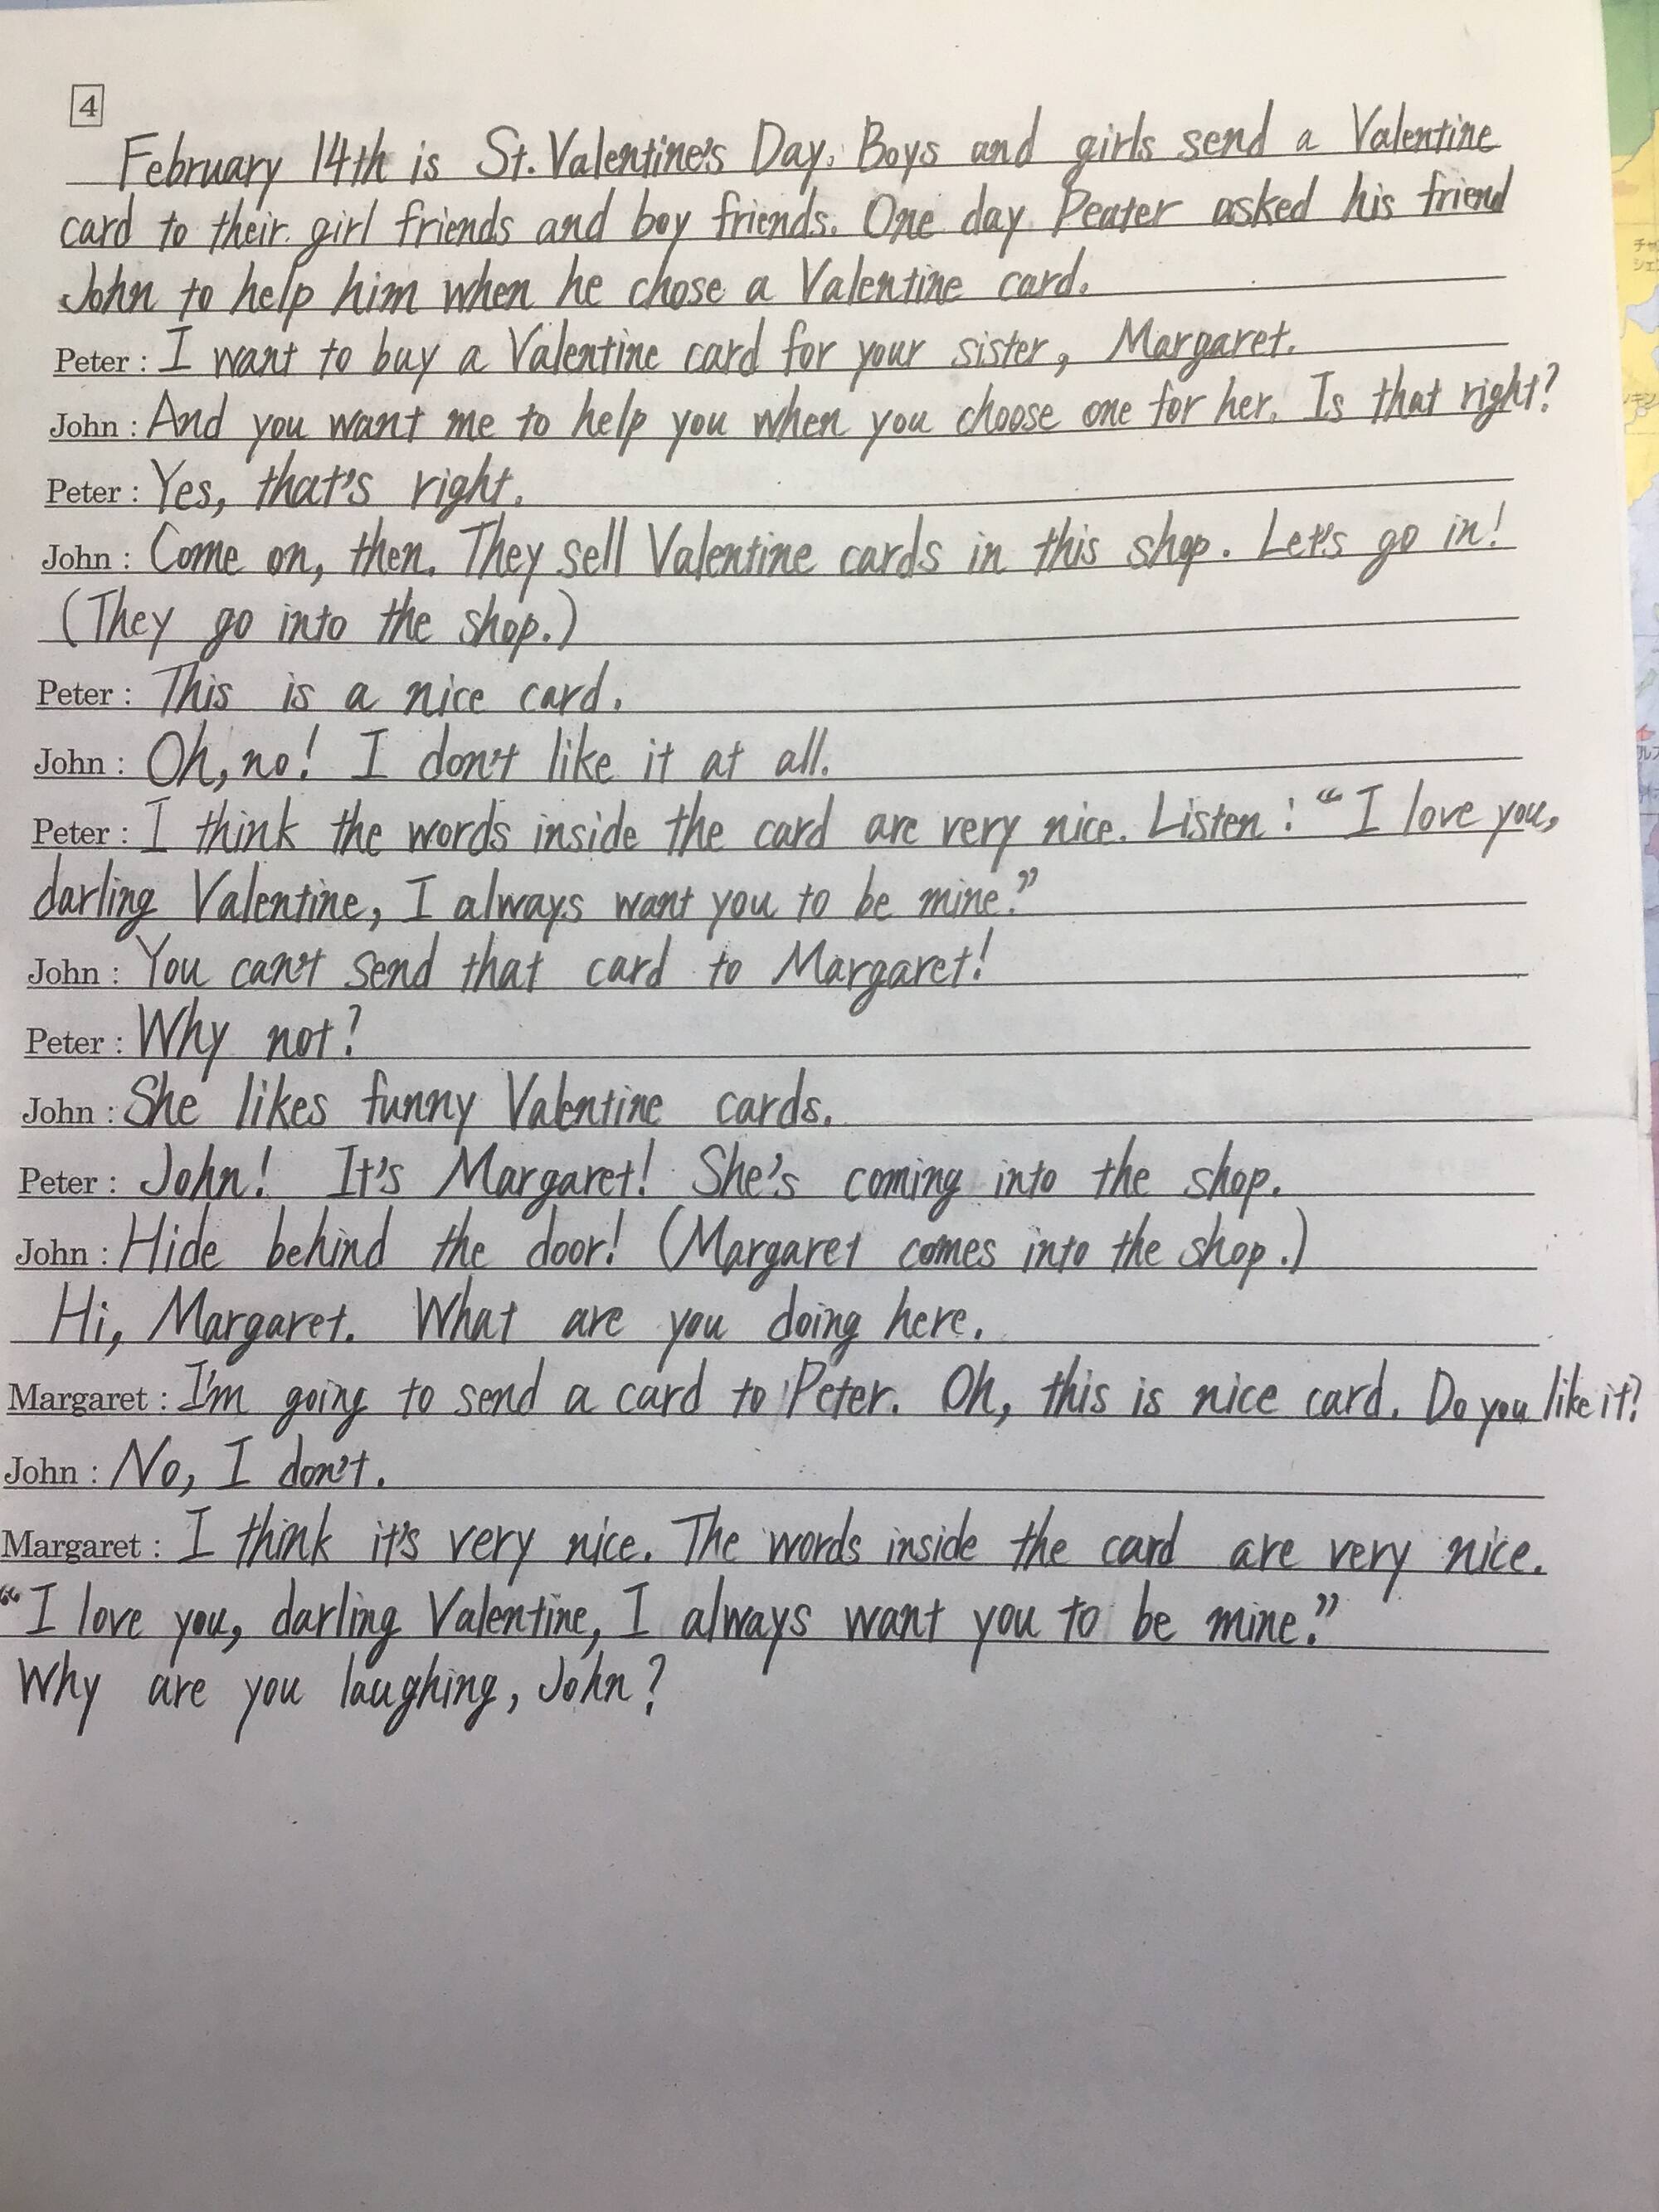 4
February 14th is St. Valentine's Day. Boys and girls send a Valentine
card to their girl friends and boy friends. One day Peater asked his friend
John to help him when he chose a Valentine card.
Peter : I want to buy a Valentine card for your sister, Margaret.
John : And you want me to help you when you choose one for her. Is that right?
Peter : Yes, that's right.
John : Come on, then. They sell Valentine cards in this shop. Let's go in!
(They go into the shop.)
Peter : This is a nice card.
John : Oh, no! I don't like it at all.
Peter : I think the words inside the card are very nice. Listen! "I love you,
darling Valentine, I always want you to be mine."
John : You can't send that card to Margaret!
Peter : Why not?
John : She likes funny Valentine cards.
Peter : John! It's Margaret! She's coming into the shop.
John : Hide behind the door! (Margaret comes into the shop.)
Hi, Margaret. What are you doing here.
Margaret : I'm going to send a card to Peter. Oh, this is nice card. Do you like it?
John : No, I don't.
Margaret : I think it's very nice. The words inside the card are very nice.
"I love you, darling Valentine, I always want you to be mine."
Why are you laughing, John?